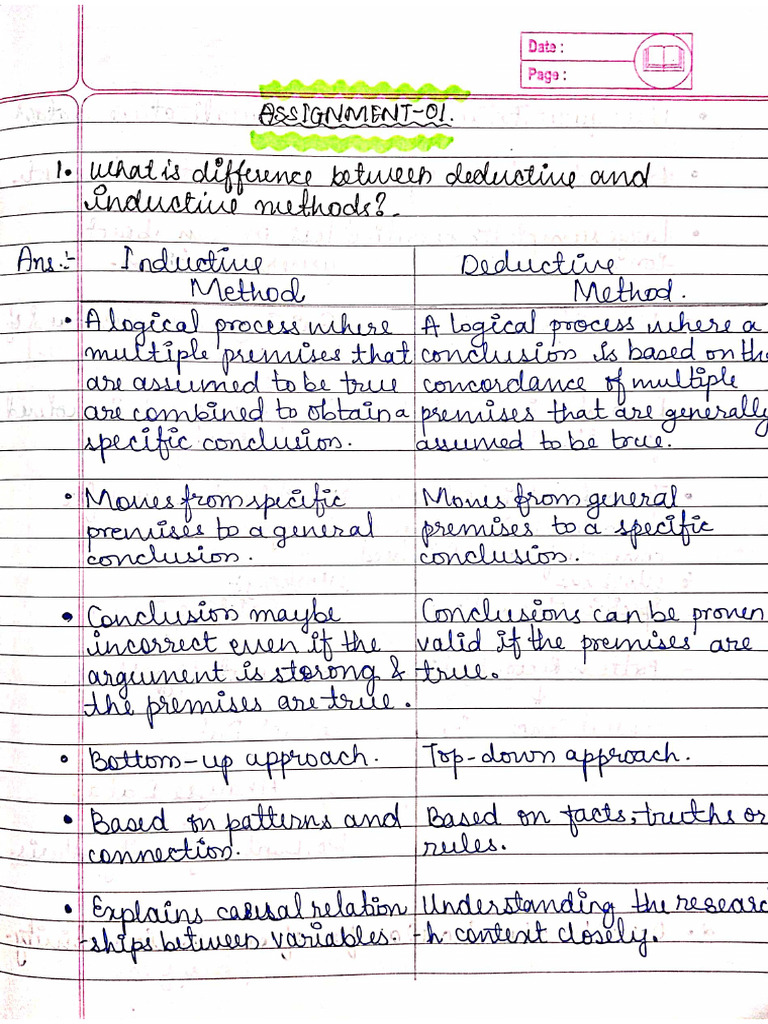 Date :
Page :
ASSIGNMENT-01.
1. What is difference between deductive and
inductive methods?
Ans :- Inductive Method
Deductive Method.
• A logical process where
multiple premises that
are assumed to be true
are combined to obtain a
specific conclusion.
A logical process where a
conclusion is based on the
concordance of multiple
premises that are generally
assumed to be true.
• Moves from specific
premises to a general
conclusion.
Moves from general
premises to a specific
conclusion.
• Conclusion maybe
incorrect even if the
argument is strong &
the premises are true.
Conclusions can be proven
valid if the premises are
true.
• Bottom-up approach.
Top-down approach.
• Based on patterns and
connection.
Based on facts, truths or
rules.
• Explains causal relation
-ships between variables.
Understanding the researc
-h context closely.